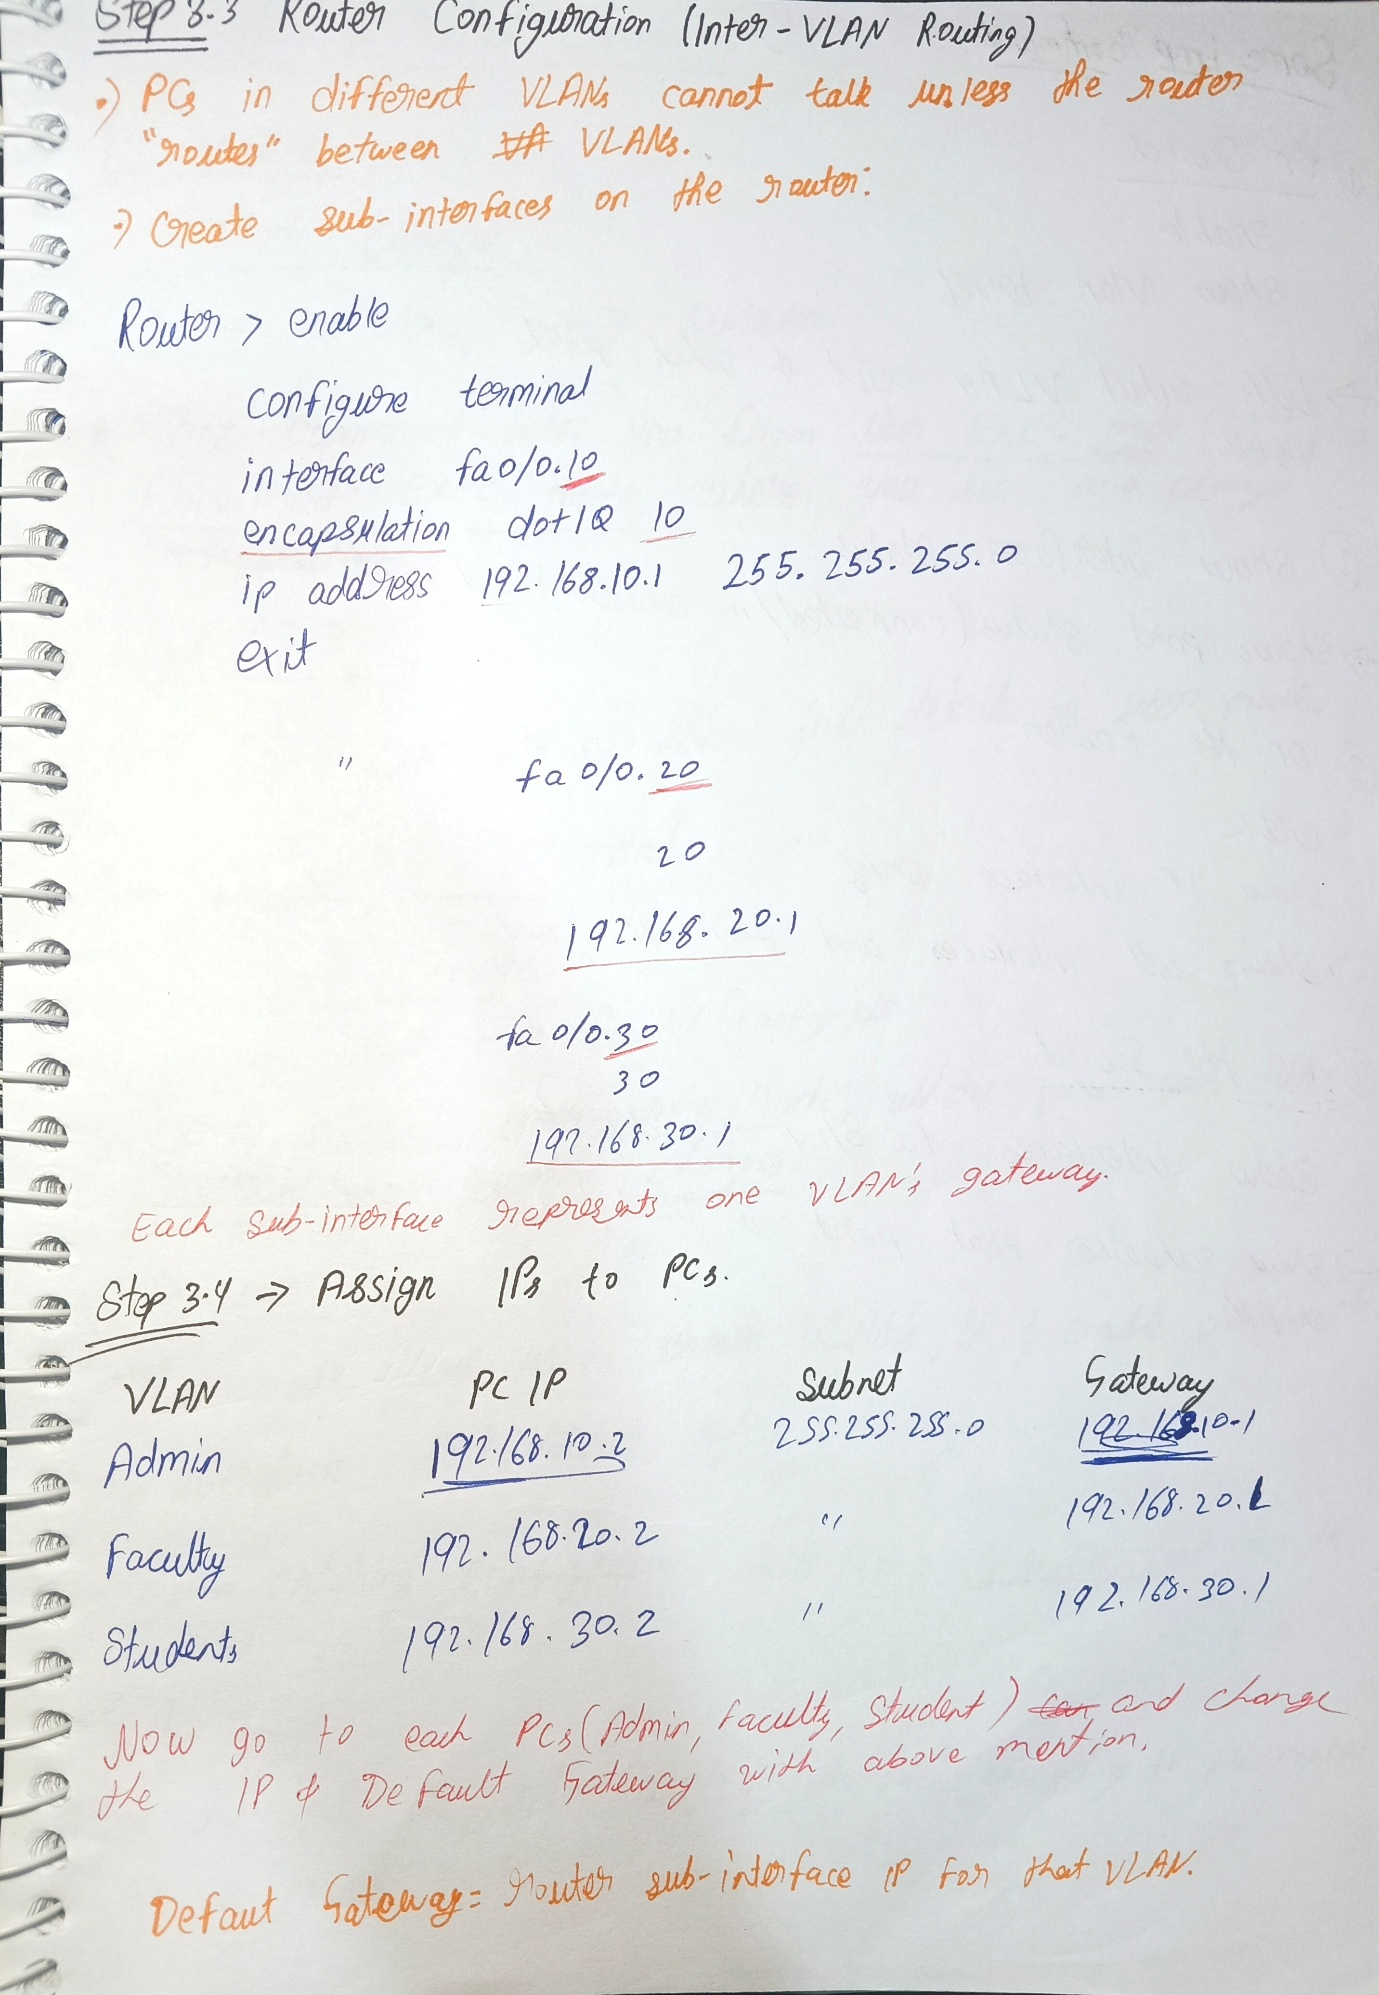 Step 3.3 Router Configuration (Inter-VLAN Routing)
•) PCs in different VLANs cannot talk unless the router
"routes" between VLANs.
•) Create sub-interfaces on the router:
Router > enable
configure terminal
interface fa0/0.10
encapsulation dot1Q 10
ip address 192.168.10.1 255.255.255.0
exit
" fa 0/0.20
20
192.168.20.1
fa 0/0.30
30
192.168.30.1
Each sub-interface represents one VLAN's gateway.
Step 3.4 → Assign IPs to PCs.
VLAN PC IP Subnet Gateway
Admin 192.168.10.2 255.255.255.0 192.168.10.1
Faculty 192.168.20.2 " 192.168.20.1
Students 192.168.30.2 " 192.168.30.1
Now go to each PCs (Admin, Faculty, Student) and change
the IP & Default Gateway with above mention.
Defaut Gateway = router sub-interface IP for that VLAN.